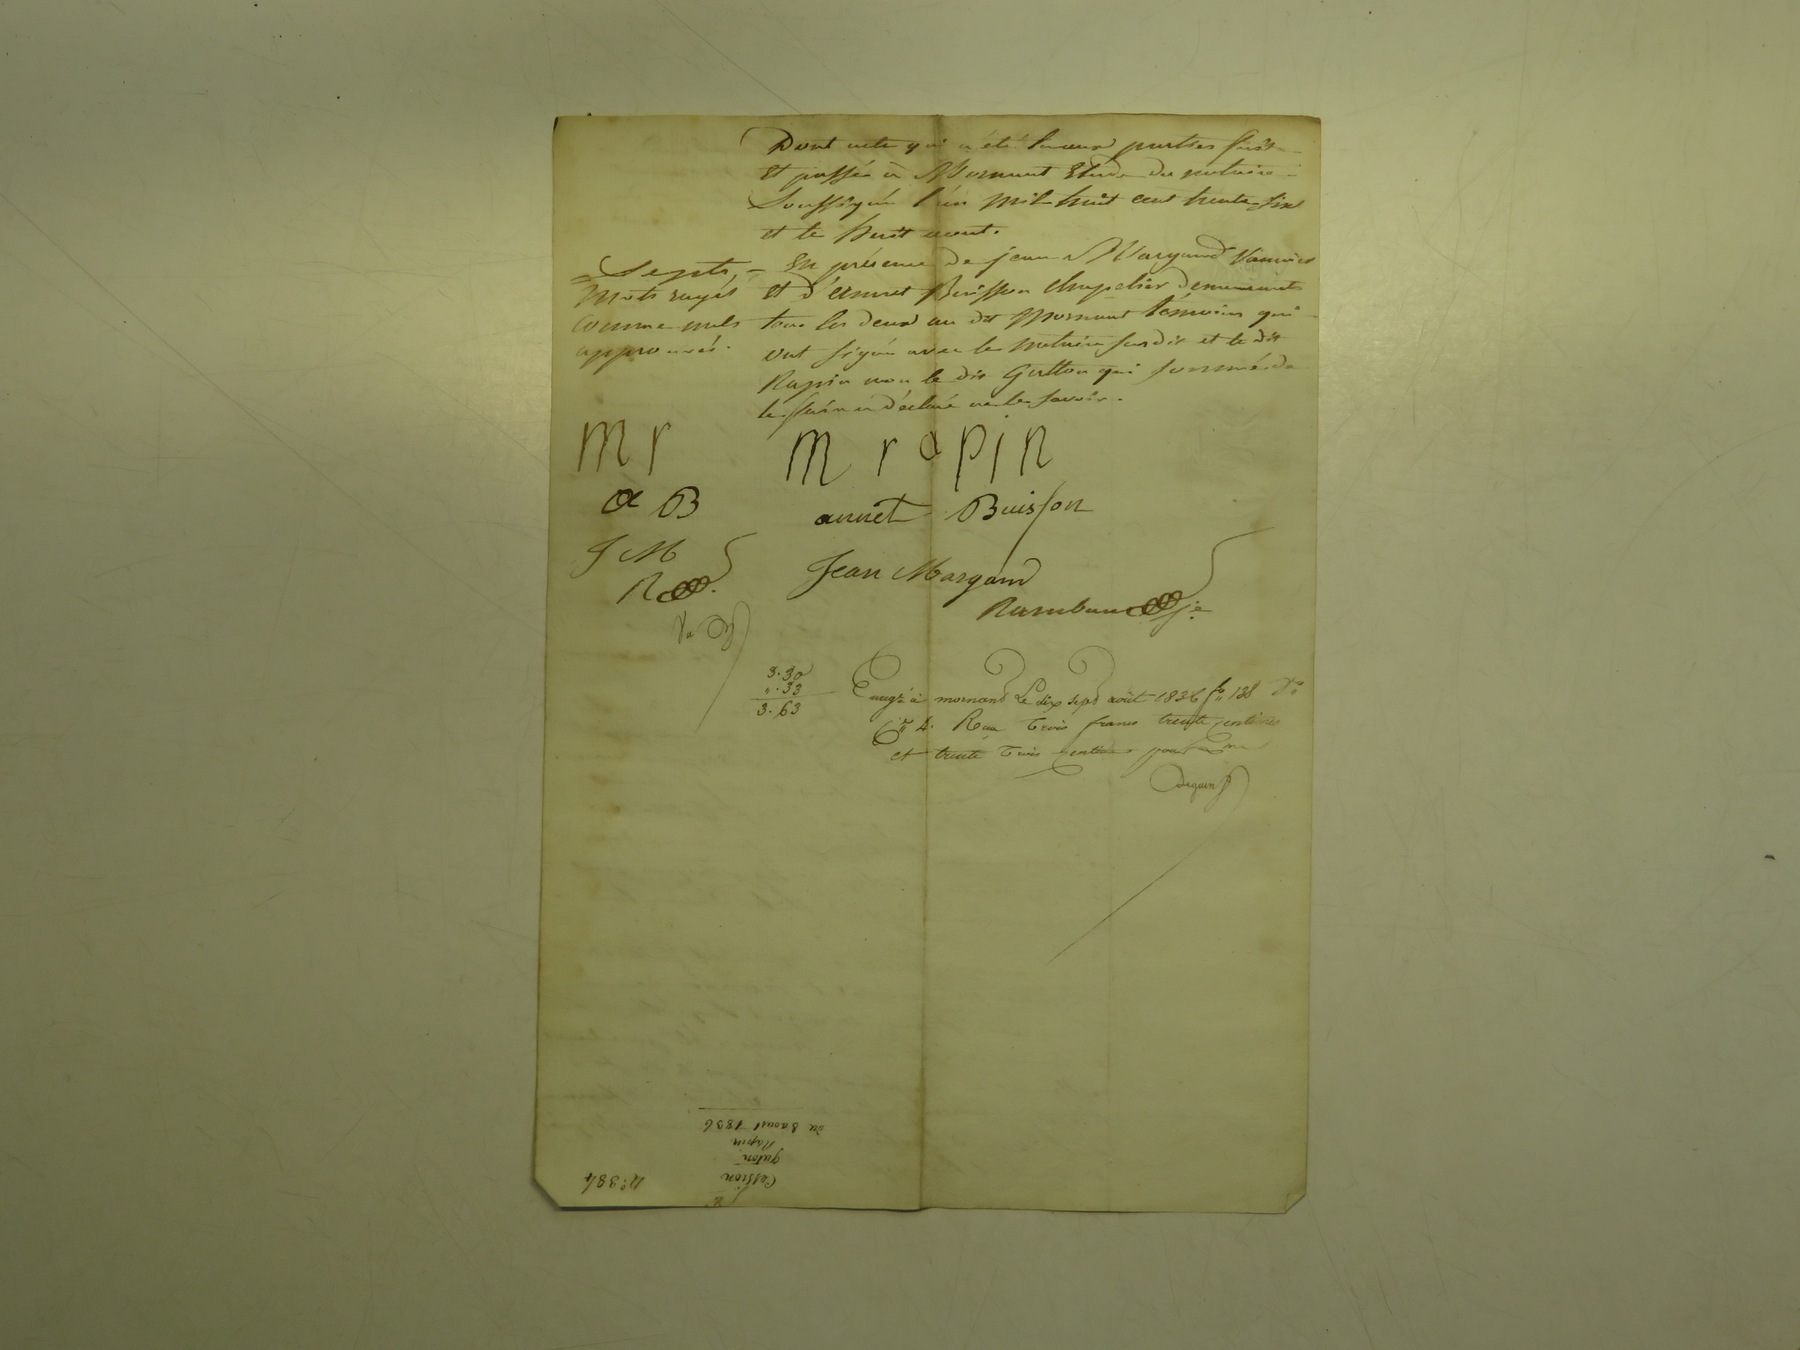 Dont acte qui a été lu aux parties fait
et passé à Mornant Etude du notaire
Soussigné l'an mil huit cent trente six
et le huit aout.
En présence de jean Margand Vannier
et d'annet Buisson chapelier demeurants
tous les deux au dit Mornant témoins qui
ont signé avec le notaire susdit et le dit
Rapin non le dit Gutton qui sommé de
le faire a déclaré ne le savoir.
Septs,
Mots rayés
comme nuls
approuvés.
m r
m rapin
a B
annet Buisson
J M
Jean Margand
R
Rambau je
Vu
3.30
".33
3.63
Enregé à mornant Le dix sept août 1836 fo 138 Vo
Cse 4. Reçu trois francs trente centimes
et trente trois centimes pour
Deguin
No 384
Cession
guton
Rapin
du 8 aout 1836